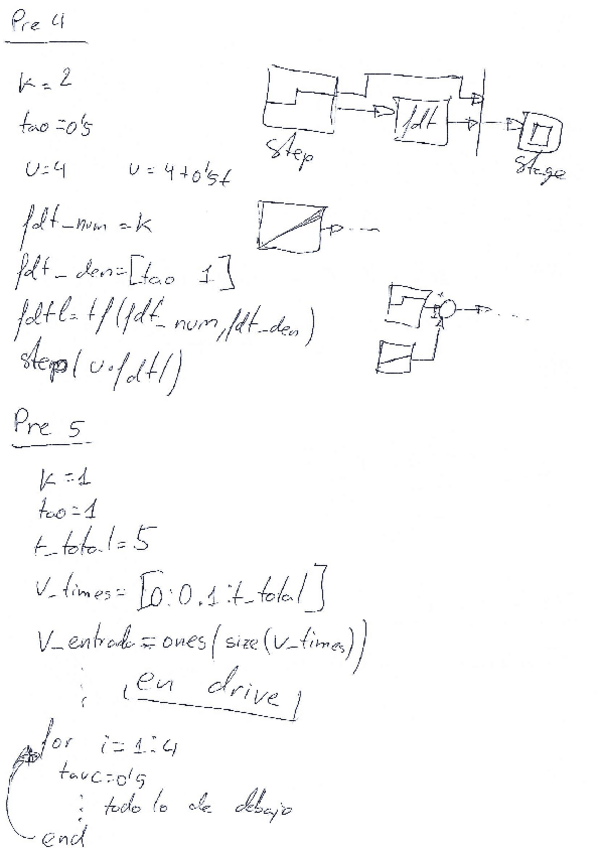 Pre 4
k = 2
tao = 0's
fdt
step
stage
U=4 U = 4+0'5t
fdt_num = k
fdt_den=[tao 1]
fdt1=tf(fdt_num,fdt_den)
step(U·fdt1)
Pre 5
k=1
tao=1
t_total=5
V_times=[0:0.1:t_total]
V_entrada=ones(size(V_times))
(en drive)
for i=1:4
tauc=0's
todo lo de debajo
end